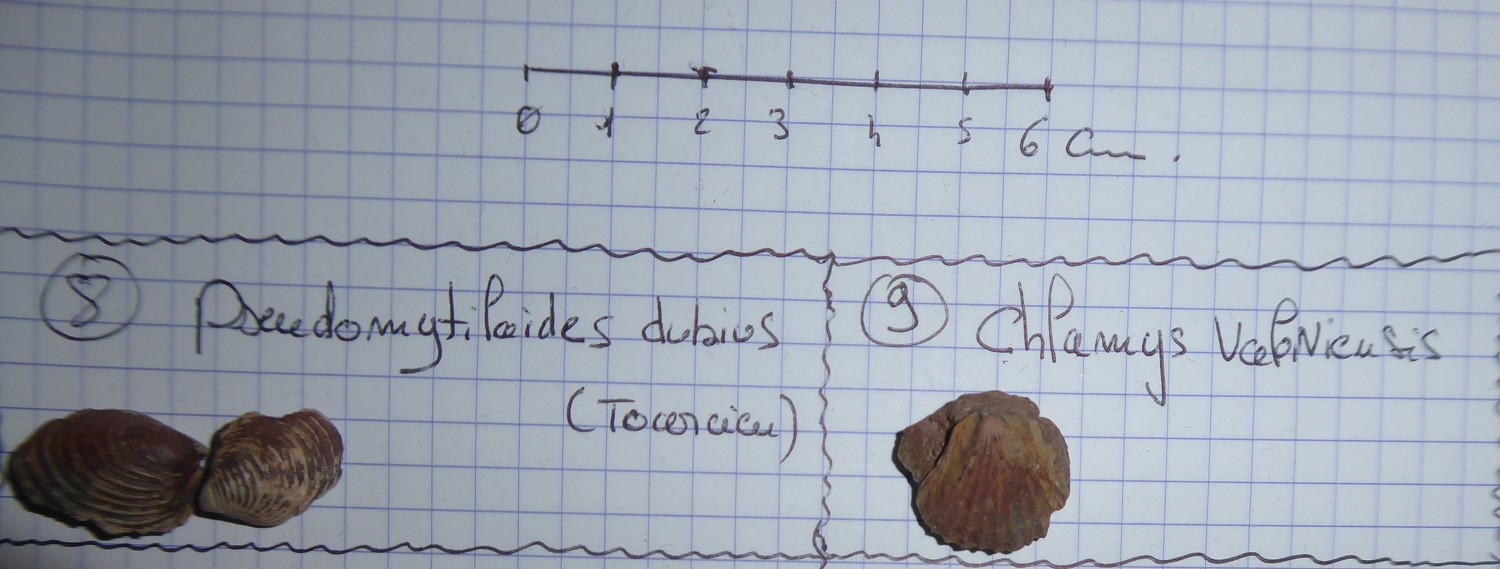 0 1 2 3 4 5 6 cm.
8 Pseudomytiloides dubius
(Toarcien)
9 Chlamys Valoniensis